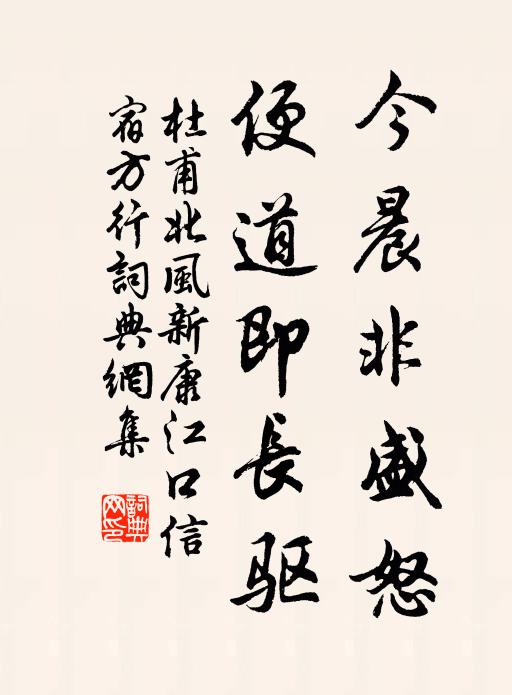 今晨非盛怒
便道即長驱
杜甫北風新康江口信
宿方行詞典網集
詞典
網印